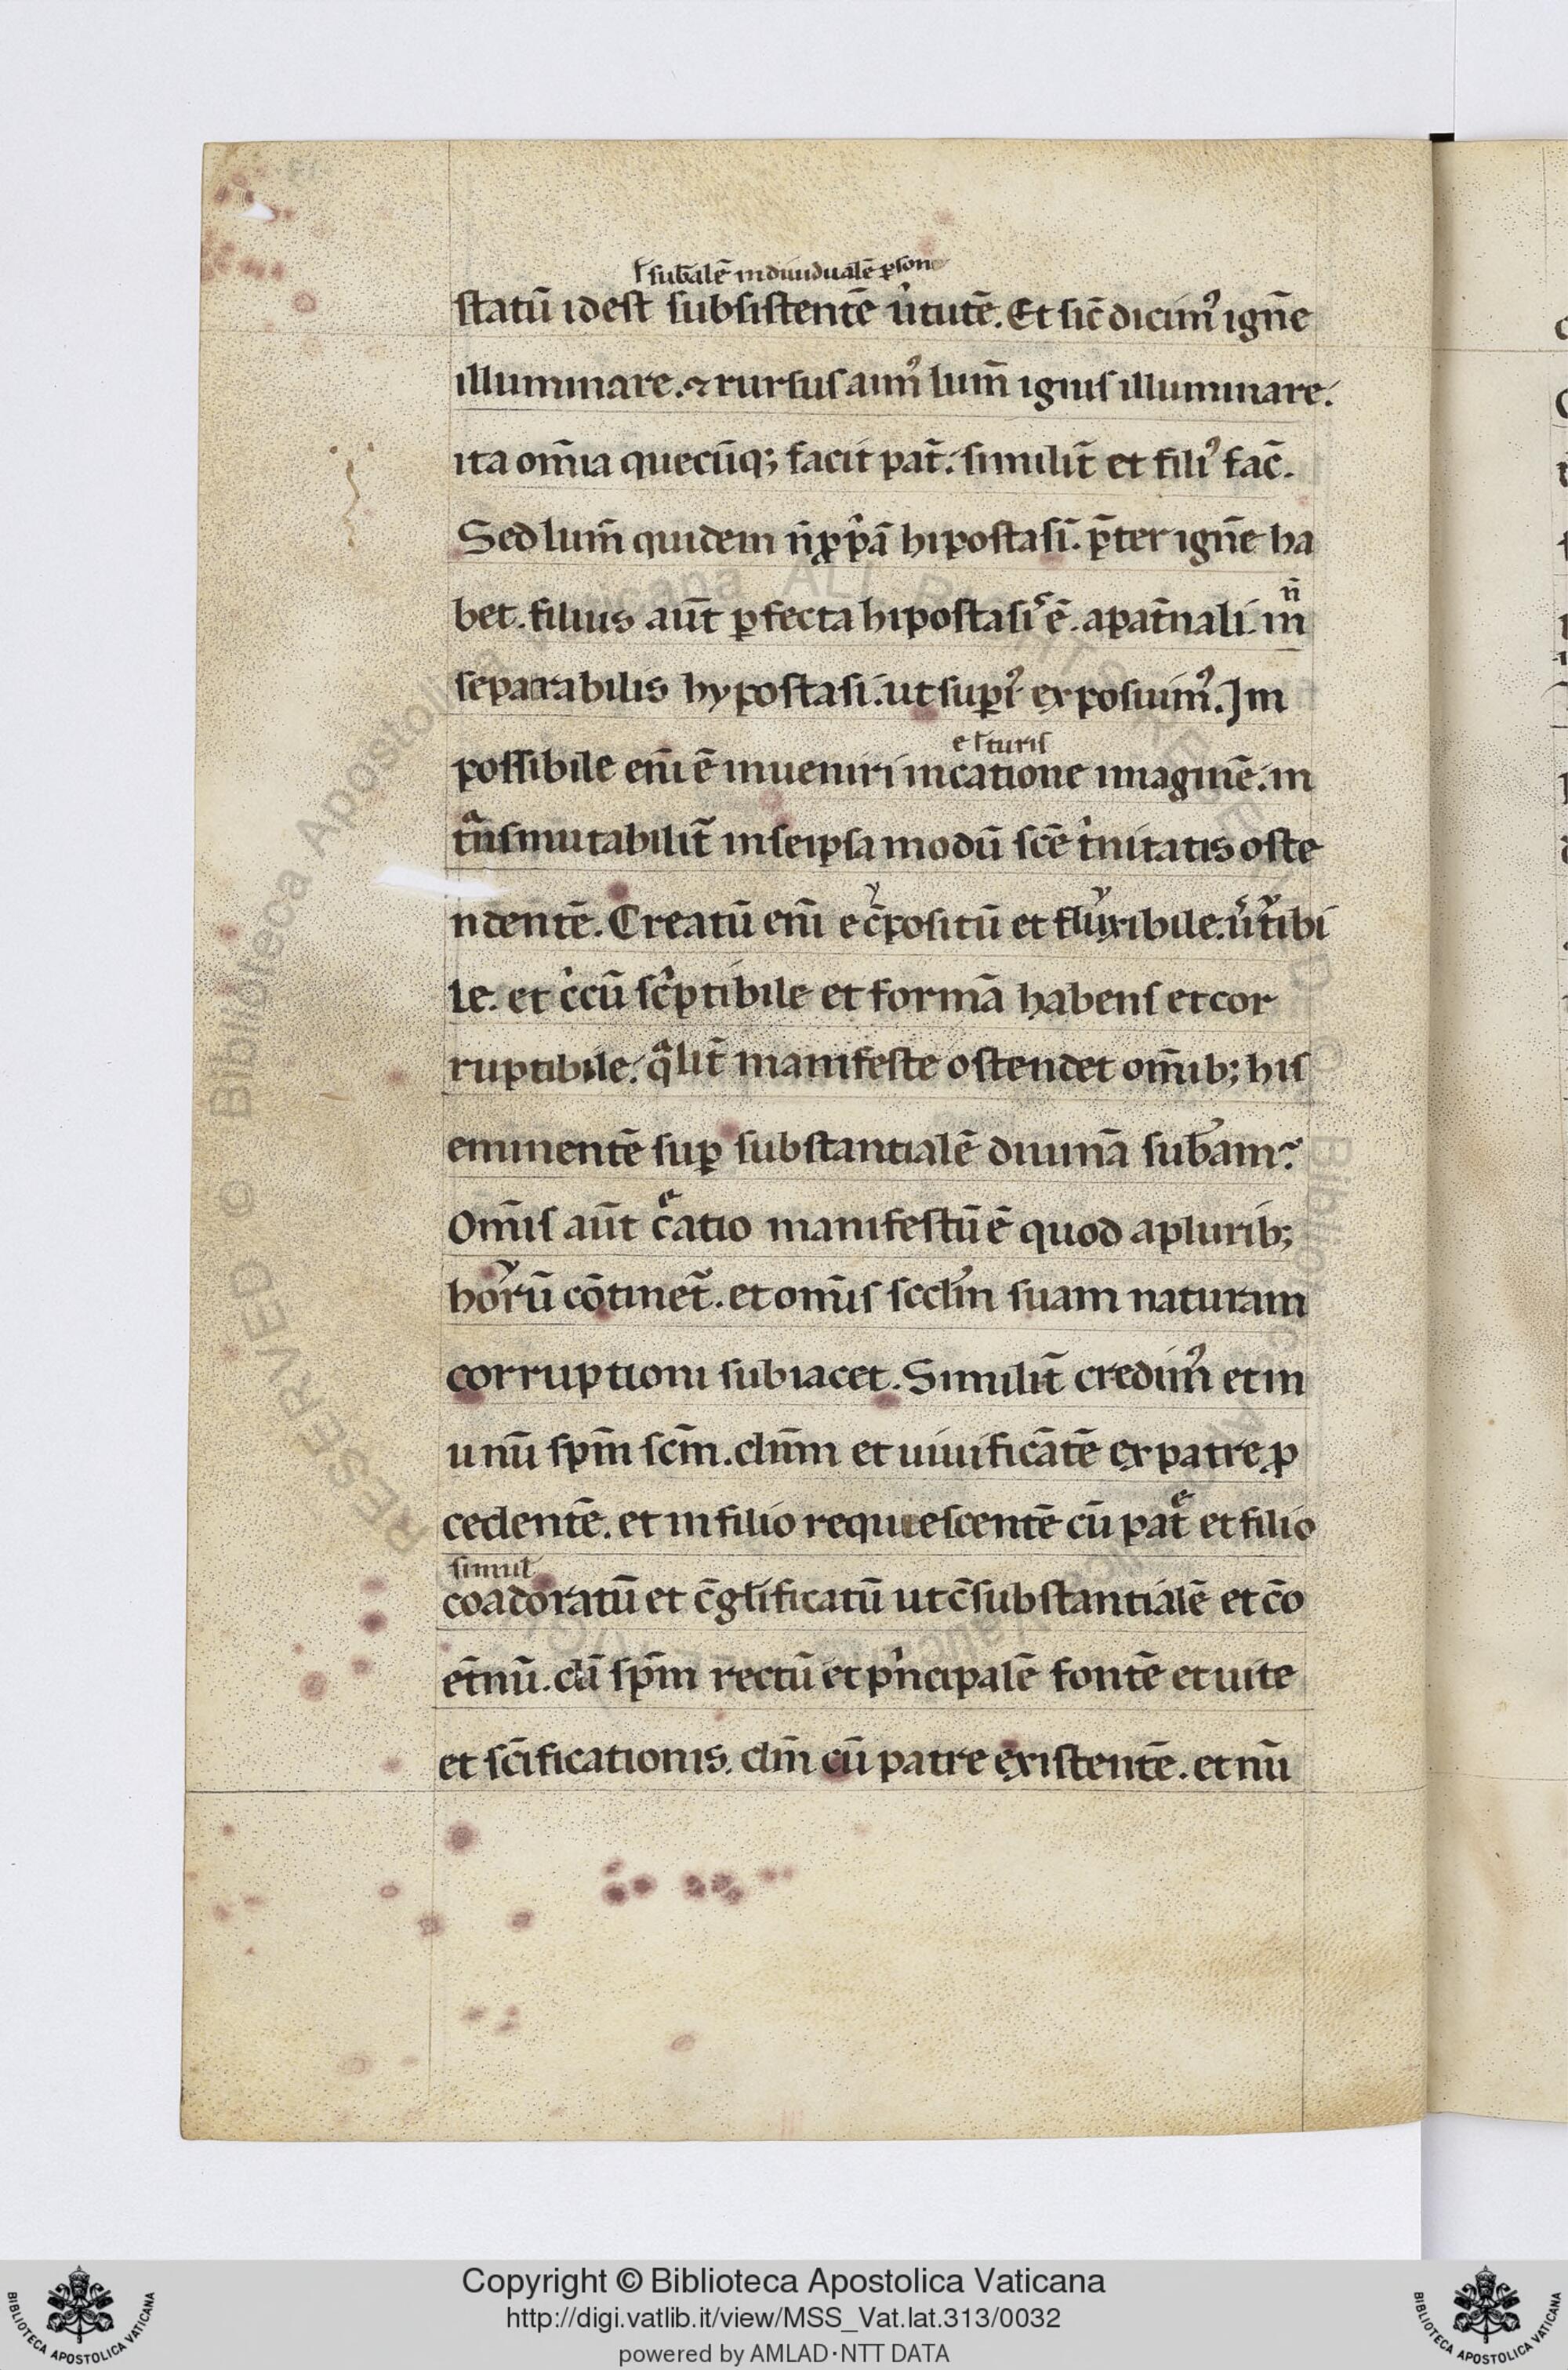 ł subalē indiuidualē ꝑsone
statū idest subsistentē u̓tutē. Et sic̄ dicim᷒ ignē
illuminare. ⁊ rursus aim᷒ lum̄ ignis illuminare.
ita om̄ia quecūq; facit pat̄. similit̄ et fili᷒ fac̄.
Sed lum̄ quidem n̄ ꝓpͥā hipostasī. p̄ter ignē ha
bet. filius aūt ꝑfecta hipostasis ē. a pat̄nali.
n̄
separabilis hypostasi. ut supͥ exposuim᷒. Im
e ł turis
possibile eni ē inueniri in catione imaginē. in
tͣnsmutabilit̄ in seipsa modū scē tͥnitatis oste
ndentē. Creatū eni et c̄positū et fluxibile. u̓tibi
le. et cͥcū scͥptibile et formā habens et cor
ruptibile. qͣlit̄ manifeste ostendet om̄ib; his
eminentē suꝑ substantialē diuinā subam.
Om̄is aūt cͤatio manifestū ē quod a plurib;
horū cōtinet᷑. et om̄is scdm suam naturam
corruptioni subiacet. Similit̄ credim᷒ et in
unū spm̄ scm̄. dnm̄ et uiuificātē ex patre ꝓ
cedentē. et in filio requiescentē cū patͤ et filio
simul
coadoratū et c̄glificatū ut c̄substantialē et co
et̄nū. dī spm̄ rectū et pͥncipalē fontē et uite
et sc̄ificationis. dm̄ cū patre existentē. et nū
Copyright © Biblioteca Apostolica Vaticana
http://digi.vatlib.it/view/MSS_Vat.lat.313/0032
powered by AMLAD·NTT DATA
BIBLIOTECA APOSTOLICA VATICANA
BIBLIOTECA APOSTOLICA VATICANA